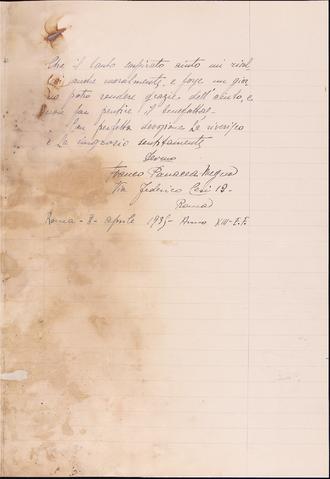 Che il tanto aspirato aiuto mi rial
zi anche moralmente, e forse un gior
no potrò rendere grazie dell'aiuto, e
non far pentire il benefattore.
Con perfetta devozione La riverisco
e La ringrazio sentitamente
Devmo
Franco
Via Federico Cesi 12-
Roma
Roma - 8 - aprile 1935 - Anno XIII - E.F.